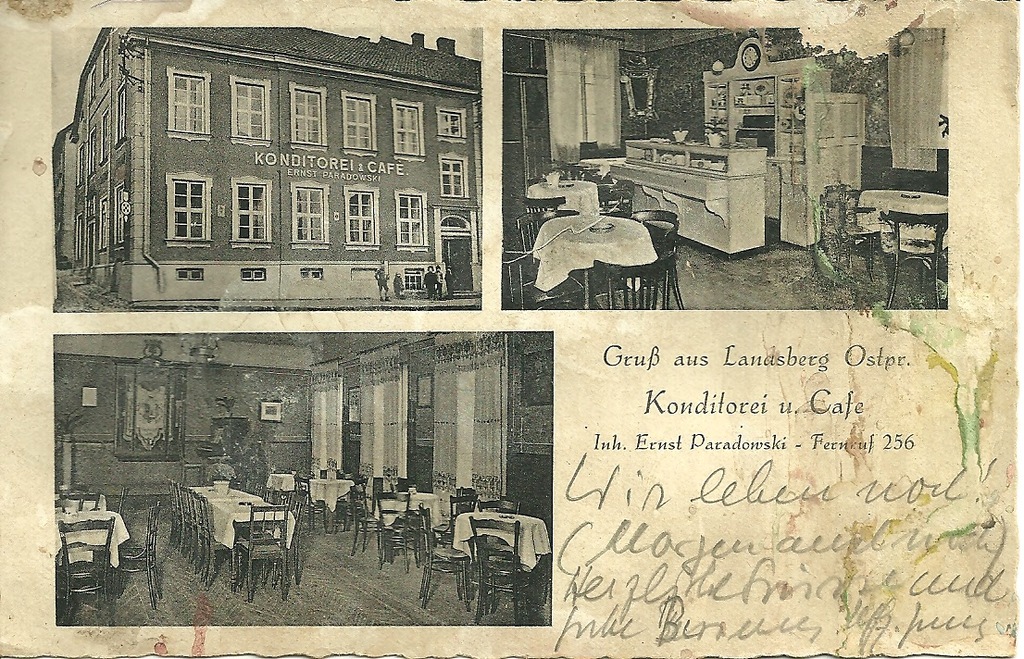 KONDITOREI & CAFÉ.
ERNST PARADOWSKI
Gruß aus Landsberg Ostpr.
Konditorei u. Cafe
Inh. Ernst Paradowski - Fernruf 256
Wir leben noch!
(Morgen auch noch)
Herzliche Grüsse und